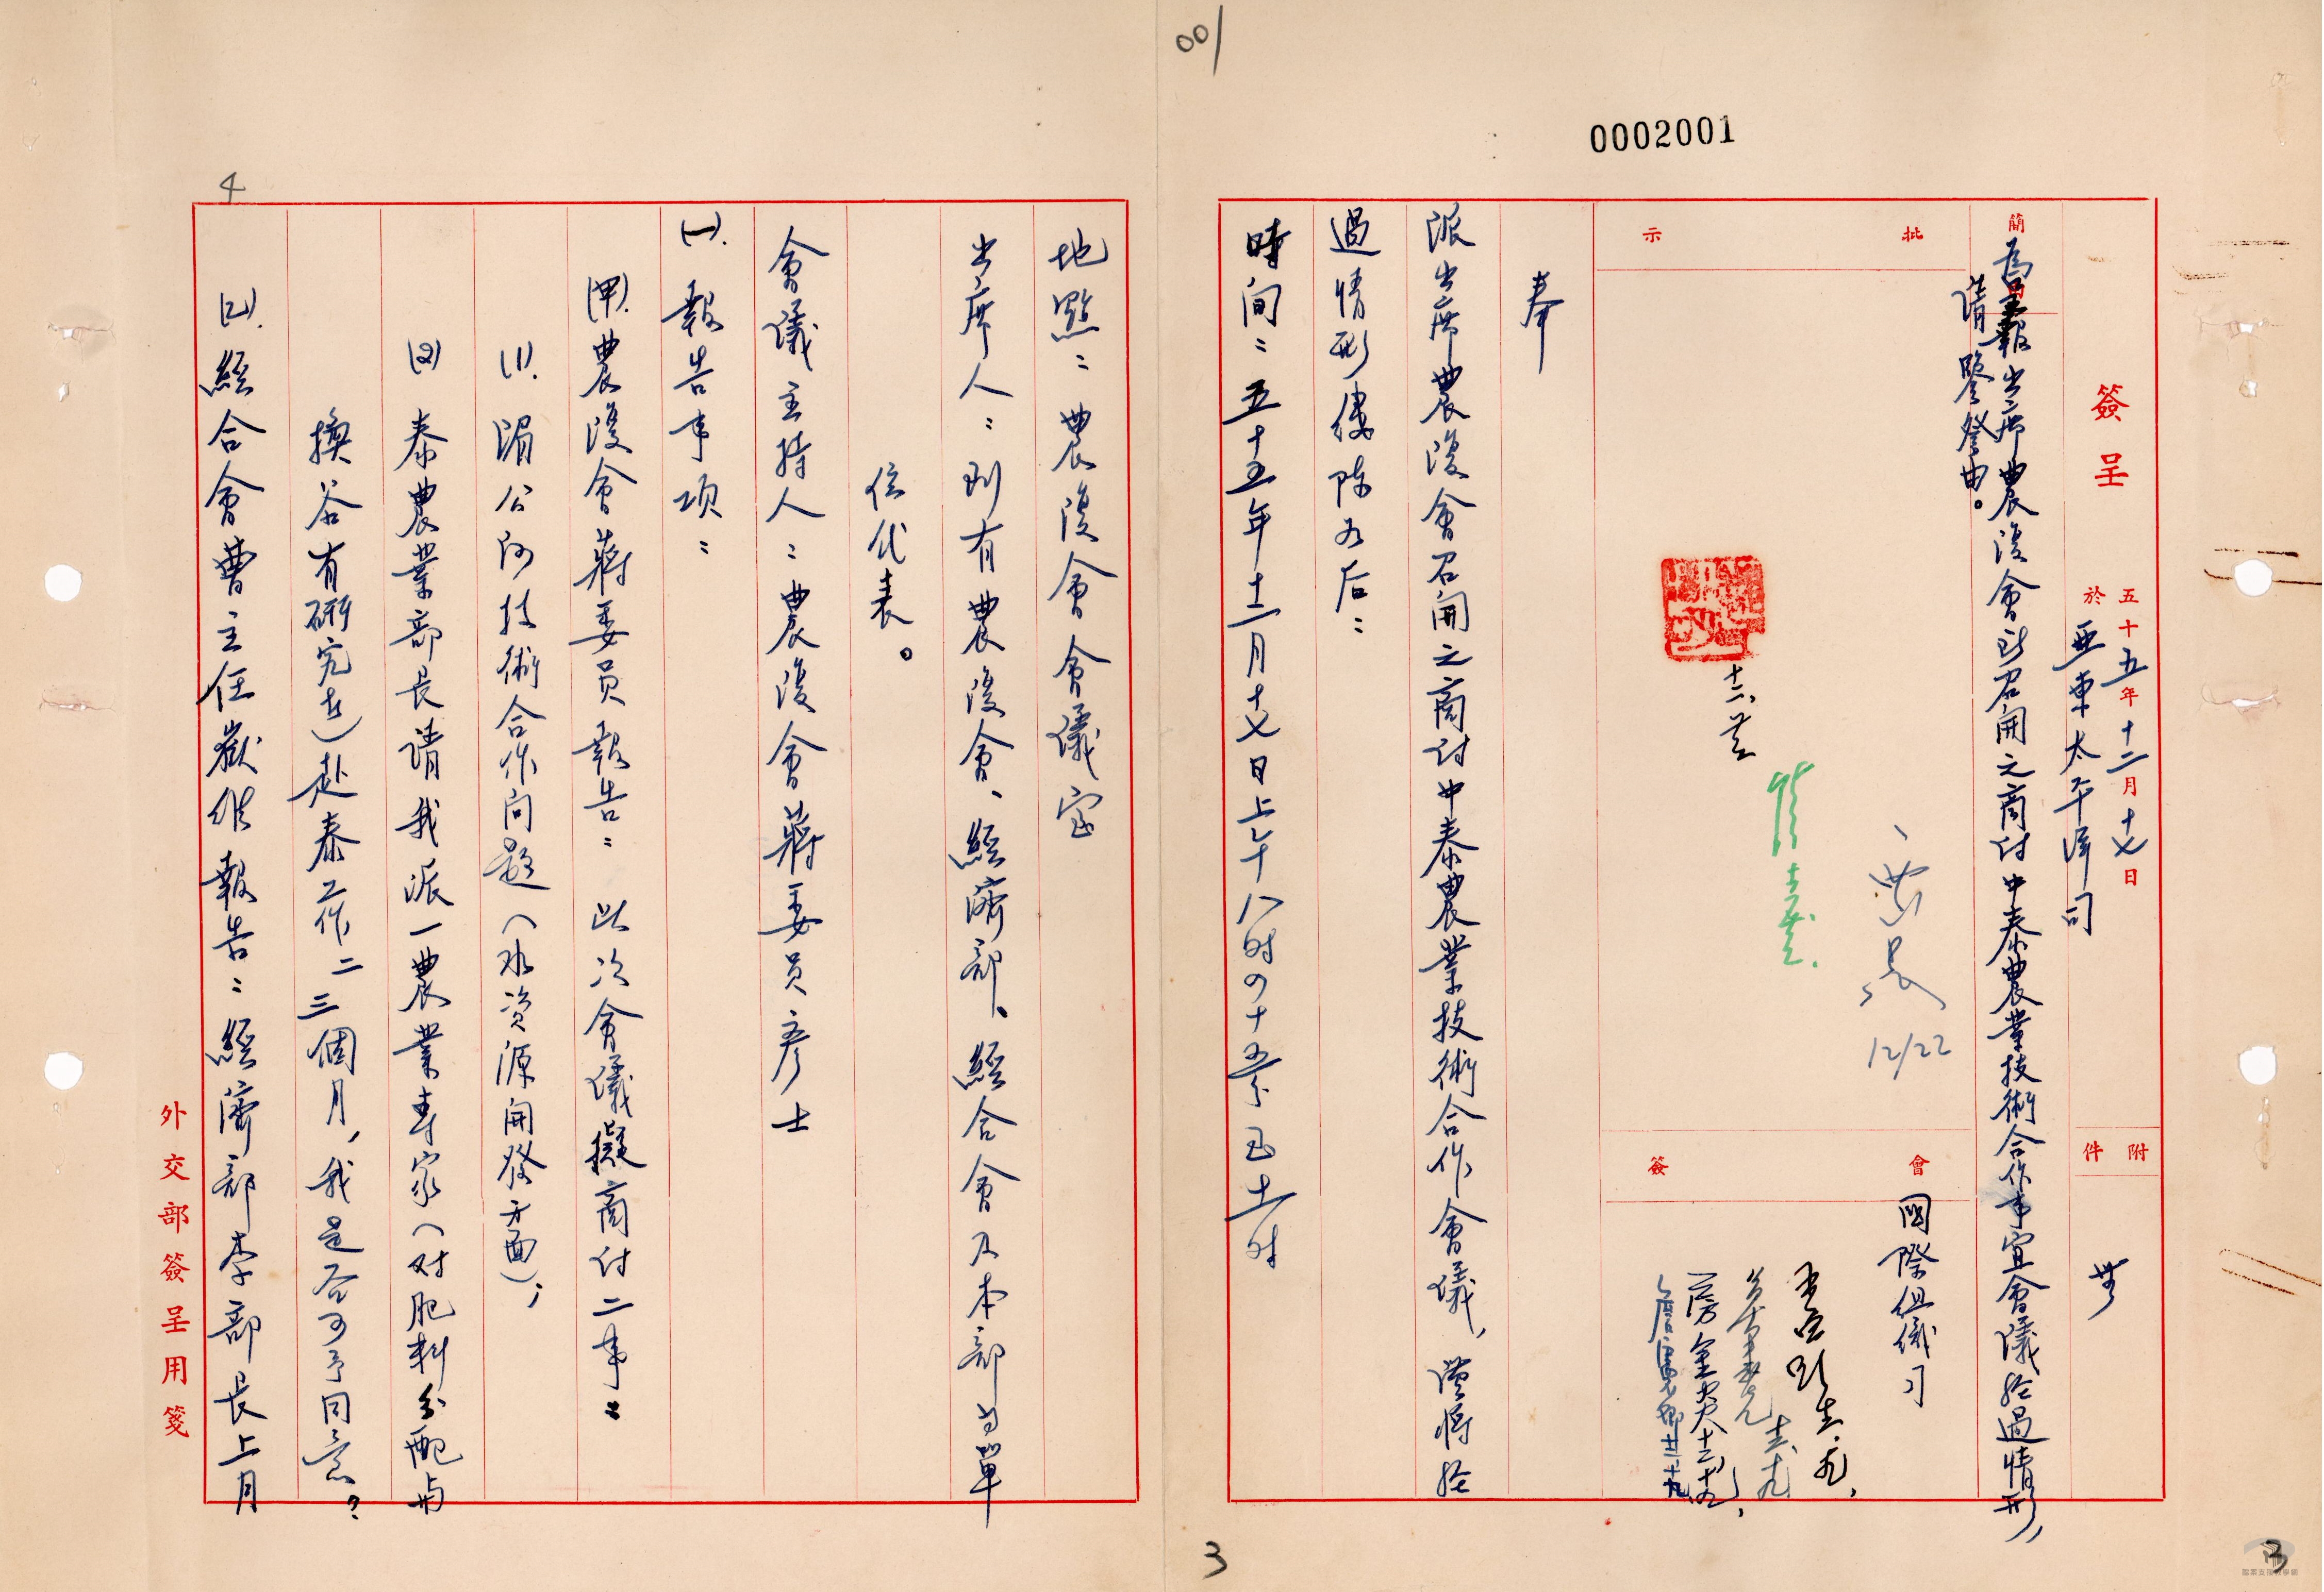 001
0002001
簽呈
五十五年十二月十七日
於亞東太平洋司
附件
無
簡
為呈報出席農復會所召開之商討中泰農業技術合作事宜會議經過情形,
請鑒詧由。
批示
十二、廿
12/22
會簽
國際組織司
奉
派出席農復會召開之商討中泰農業技術合作會議,謹將經
過情形縷陳於后:
時间:五十五年十二月十七日上午八时四十五分至十一时
地點:農復會會議室
出席人:到有農復會、經濟部、經合會及本部等單
位代表。
會議主持人:農復會蔣委员彥士
(一).報告事項:
(甲).農復會蔣委员報告:此次會議擬商討二事:
(1).湄公河技術合作问題(水资源開發方面);
(2)泰農業部長请我派一農業專家(对肥料分配与
換谷有研究者)赴泰工作二三個月,我是否可予同意?
(乙).經合會曹主任嶽維報告:經濟部李部長上月
外交部簽呈用箋
4
3
3
國家文檔教學網